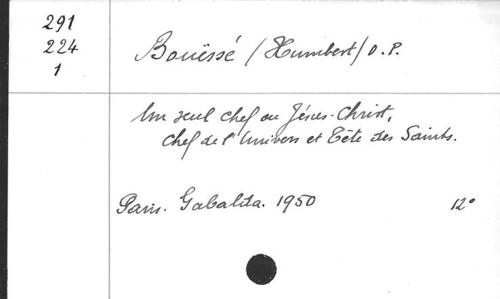 291
224
1
Bouëssé (Humbert) O.P.
Un seul chef ou Jésus-Christ,
chef de l'Univers et Tête des Saints.
Paris. Gabalda. 1950 12°